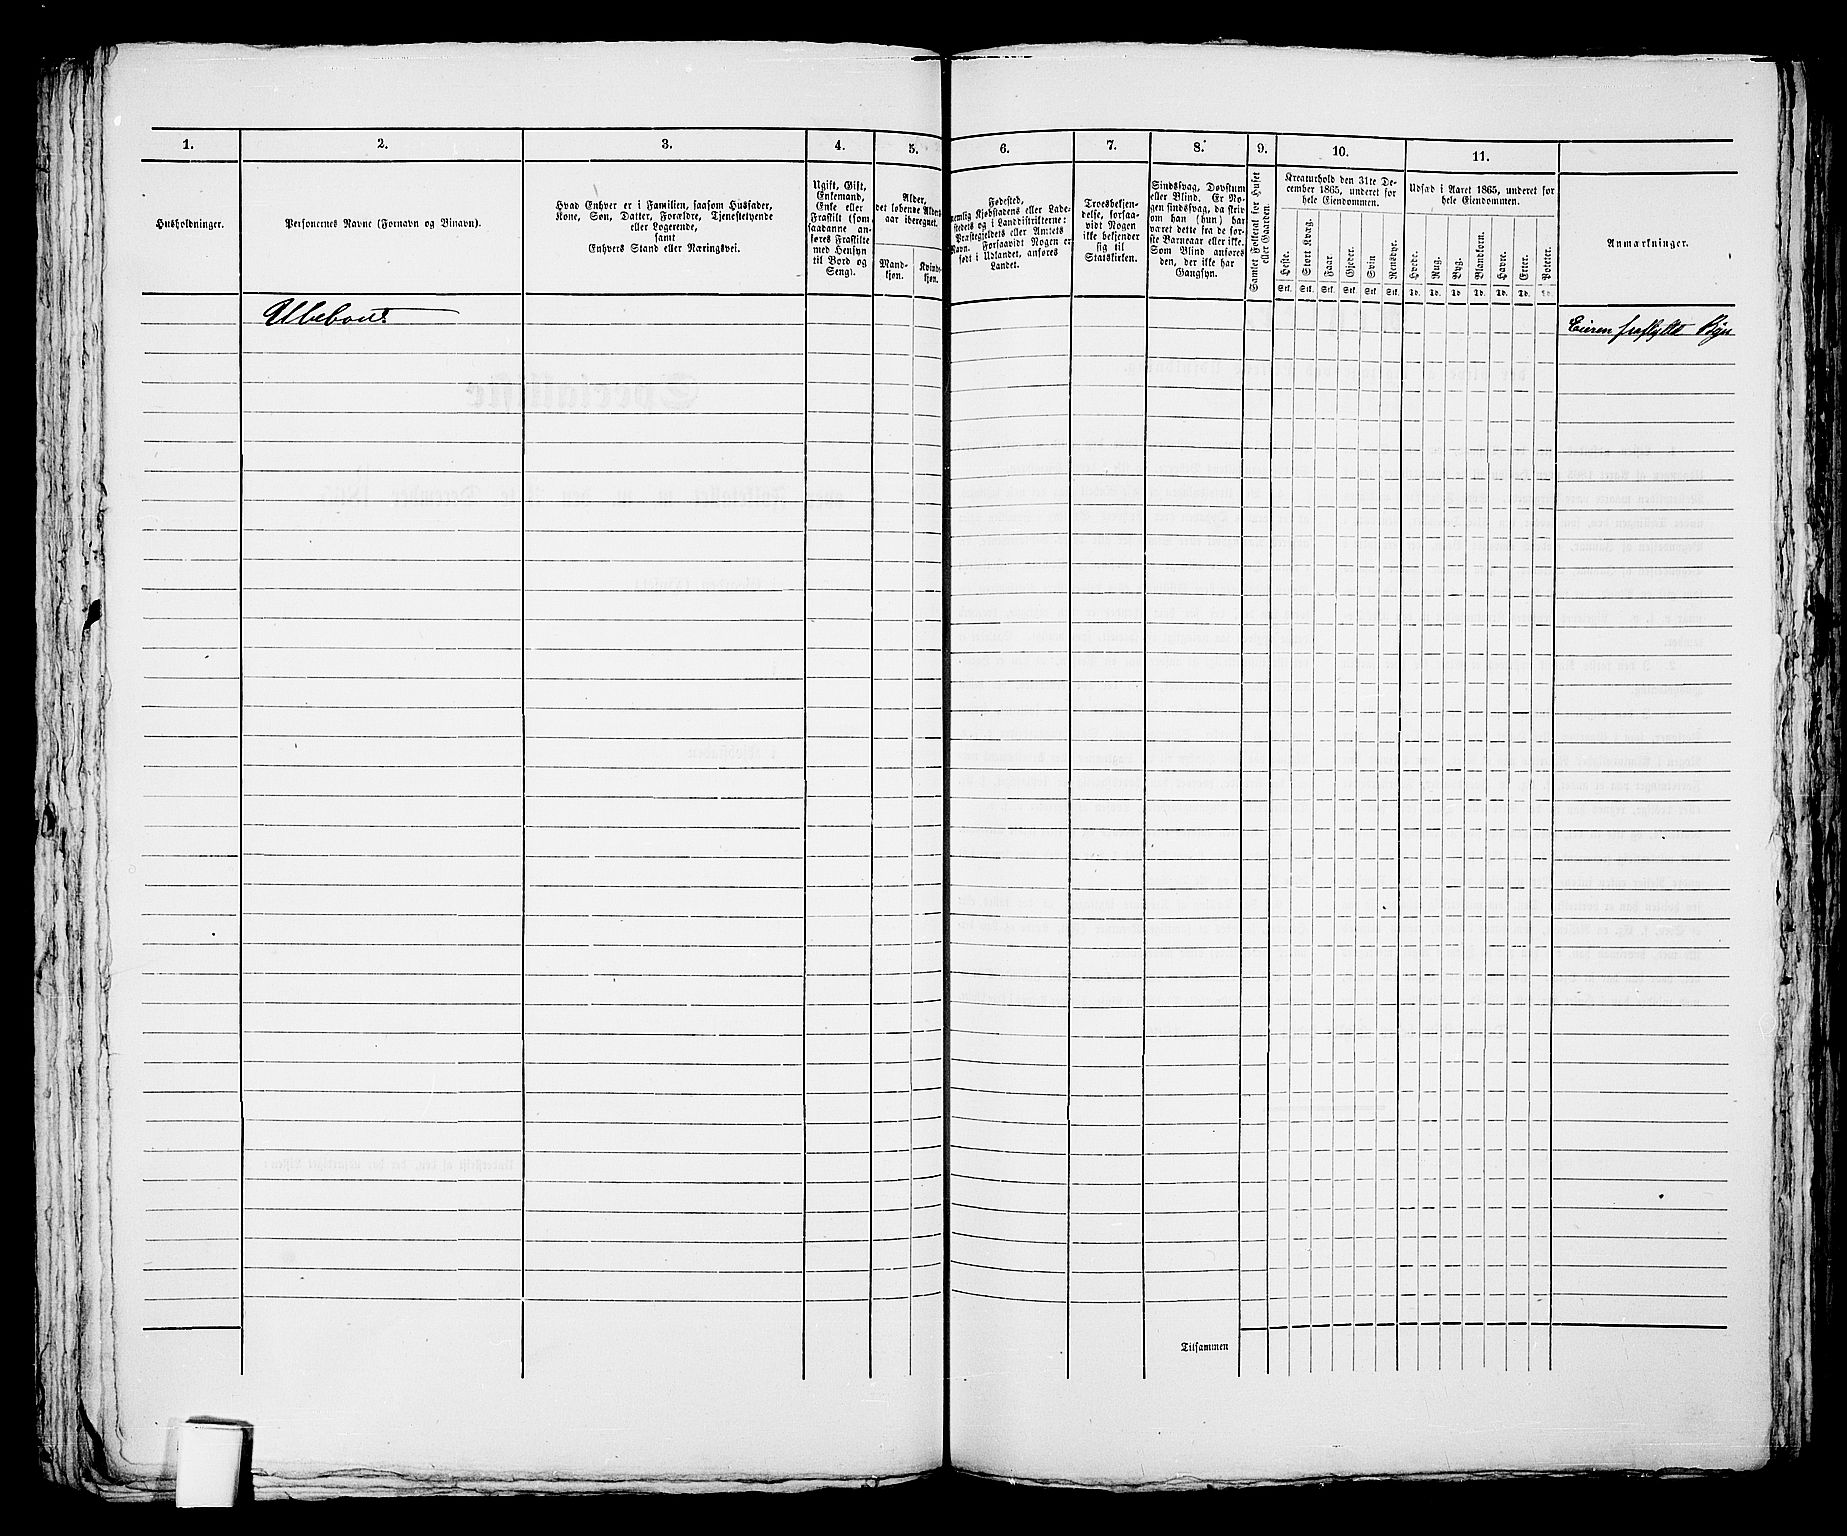 1.
2.
3.
4.
5.
6.
7.
8.
9.
10.
11.
Husholdninger.
Personernes Navne (Fornavn og Binavn).
Hvad Enhver er i Familien, saasom Husfader,
Kone, Søn, Datter, Forældre, Tjenestetyende
eller Logerende,
samt
Enhvers Stand eller Næringsvei.
Ugift, Gift,
Enkemand,
Enke eller
Fraskilt (som
saadanne an-
føres Fraskilte
med Hensyn
til Bord og
Seng).
Alder,
det løbende Alders-
aar iberegnet.
Mand-
kjøn.
Kvinde-
kjøn.
Fødested,
nemlig Kjøbstadens eller Lade-
stedets og i Landdistrikterne:
Præstegjeldets eller Amtets
Navn. Forsaavidt Nogen er
født i Udlandet, anføres
Landet.
Troesbekjen-
delse, forsaa-
vidt Nogen
ikke bekjender
sig til
Statskirken.
Sindssvag, Døvstum
eller Blind. Er No-
gen sindssvag, da skriv
om han (hun) har
været dette fra de før-
ste Barneaar eller ikke.
Som Blind anføres
den, der ikke har
Gangsyn.
Gamlet Folketal for Huset
eller Gaarden.
Kreaturhold den 31te De-
cember 1865, underet for
hele Eiendommen.
Heste.
Stort Kvæg.
Faar.
Gjeder.
Svin
Rensdyr.
Stk. Stk. Stk. Stk. Stk. Stk.
Udsæd i Aaret 1865, underet for
hele Eiendommen.
Hvede.
Rug.
Byg.
Blandkorn.
Havre.
Erter.
Poteter.
Td. Td. Td Td. Td. Td. Td.
Anmærkninger.
Ubeboet
Eieren fraflyttet Byen
Tilsammen